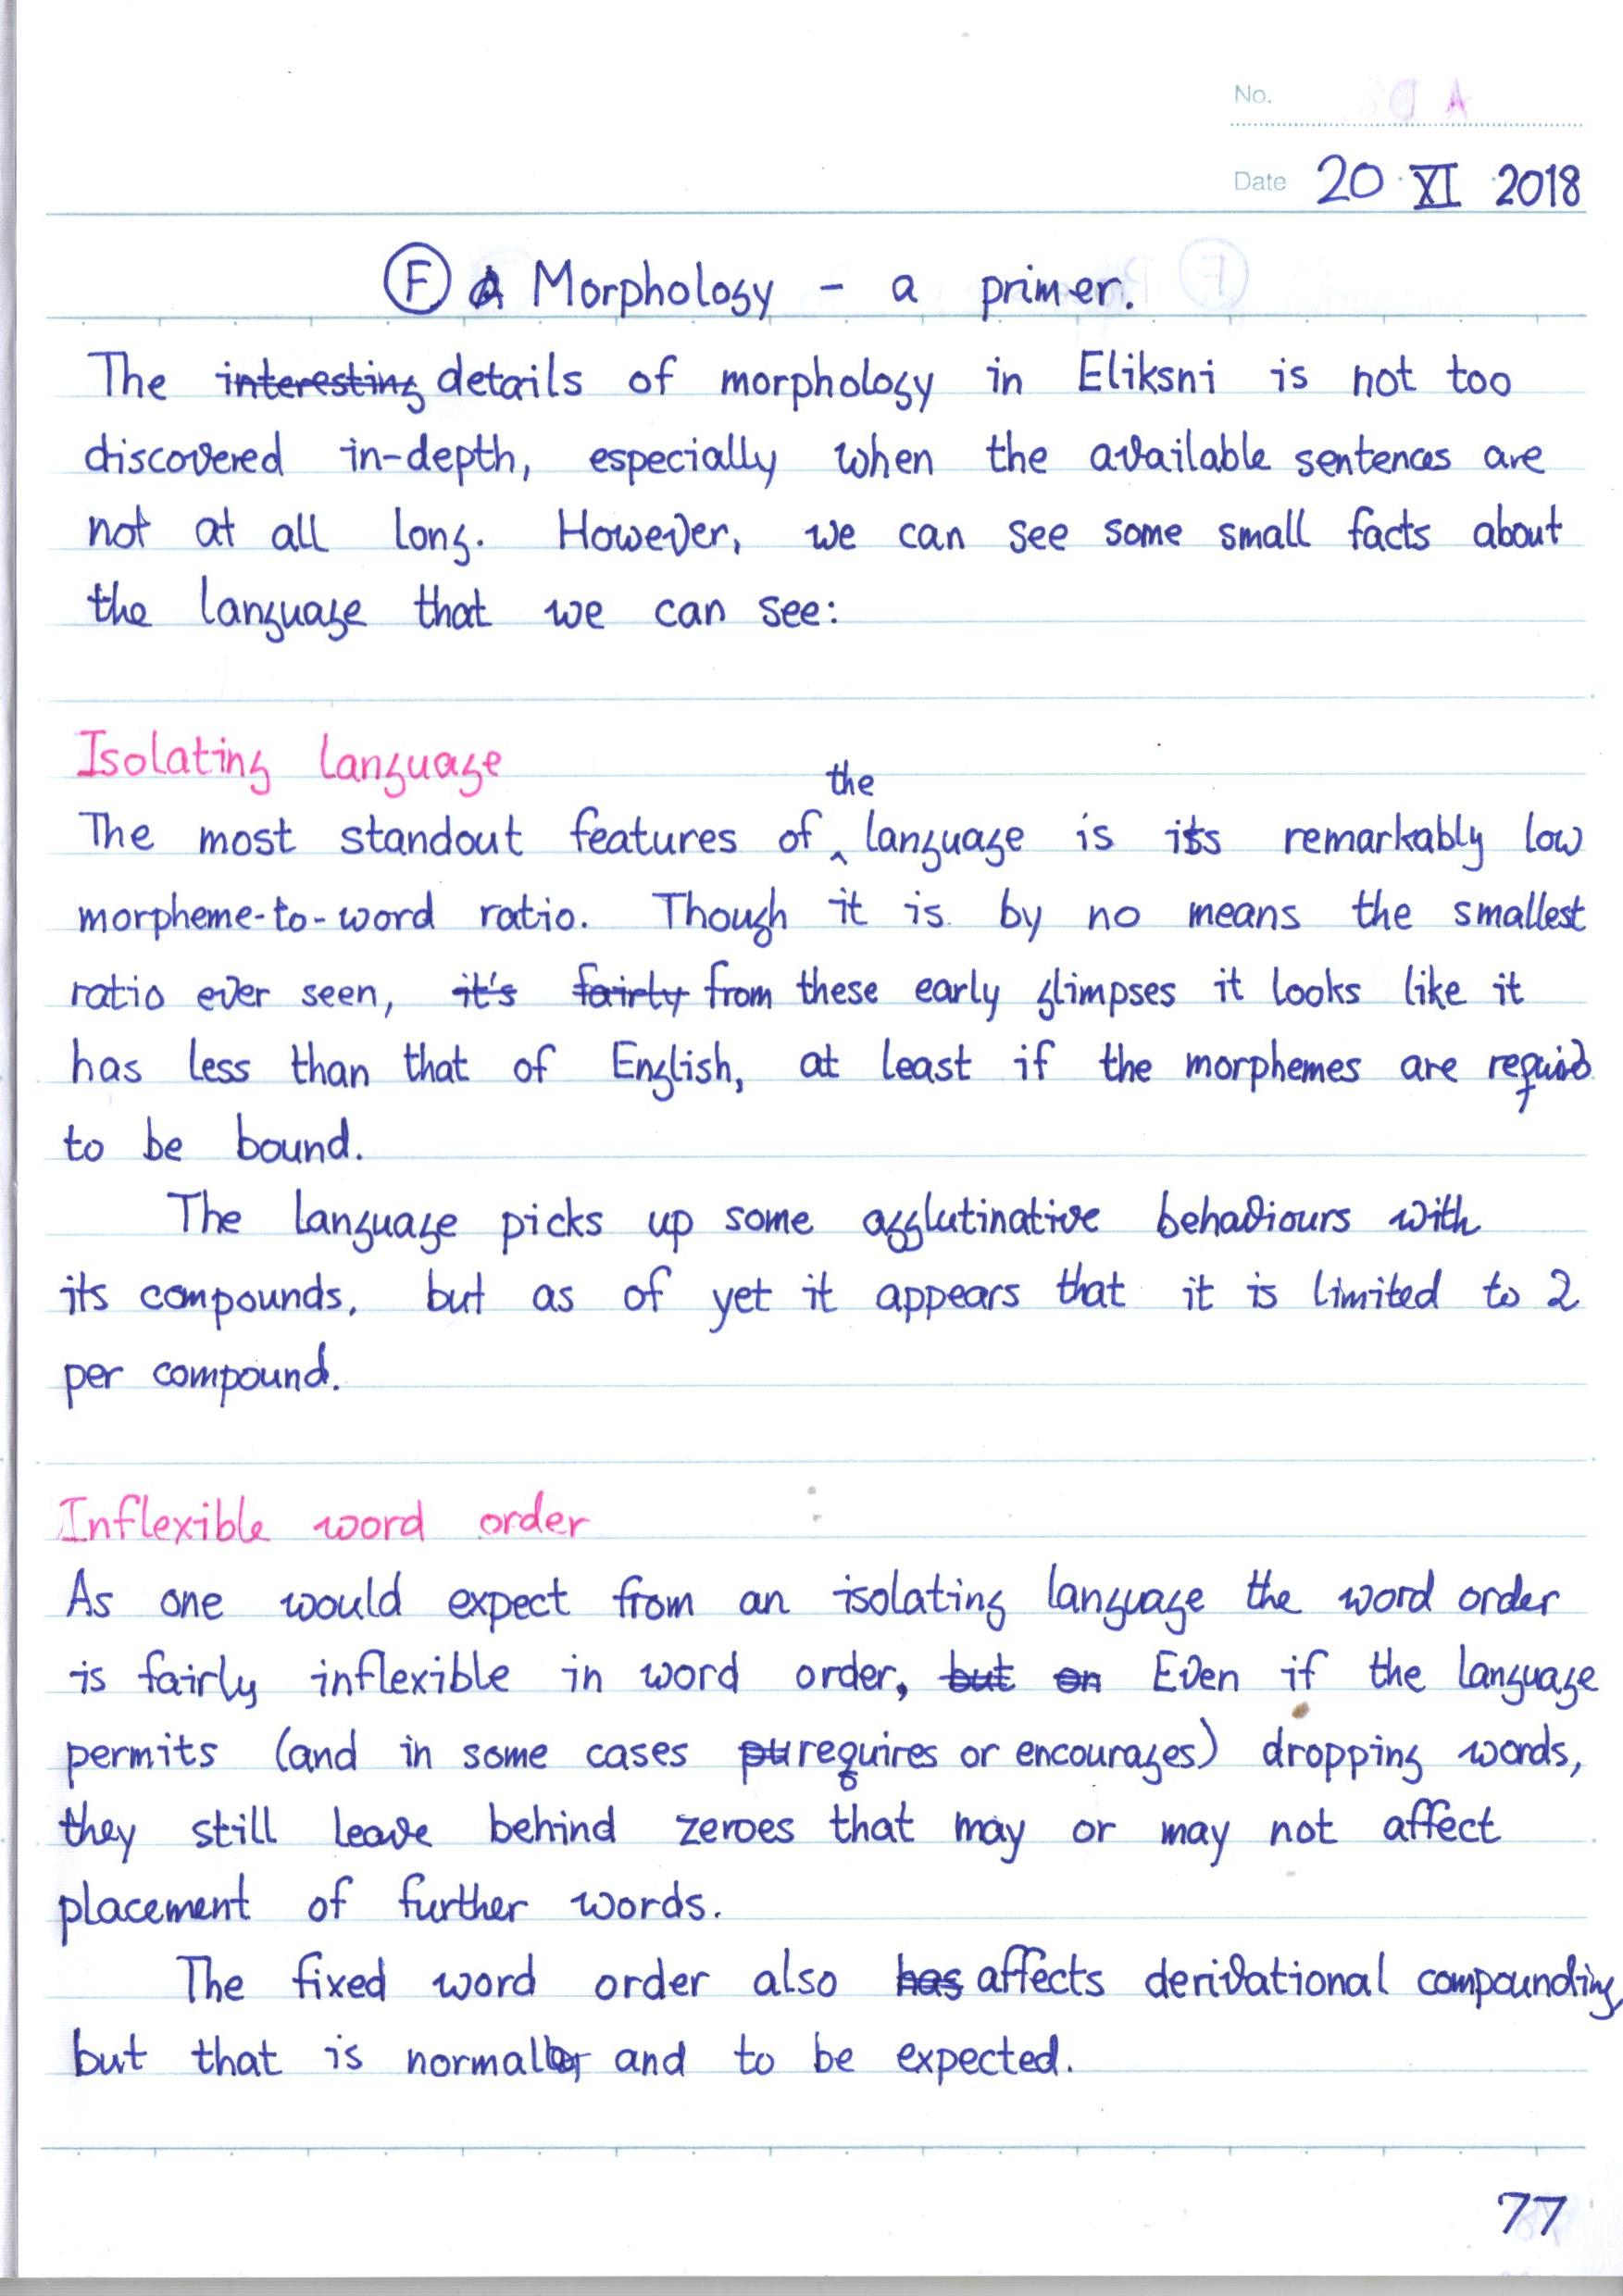 No.
Date 20 XI 2018
F Morphology - a primer.
The interesting details of morphology in Eliksni is not too
discovered in-depth, especially when the available sentences are
not at all long. However, we can see some small facts about
the language that we can see:
Isolating language
the
The most standout features of ^ language is its remarkably low
morpheme-to-word ratio. Though it is by no means the smallest
ratio ever seen, it's fairly from these early glimpses it looks like it
has less than that of English, at least if the morphemes are
to be bound.
The language picks up some agglutinative behaviours with
its compounds, but as of yet it appears that it is limited to 2
per compound.
Inflexible word order
As one would expect from an isolating language the word order
is fairly inflexible in word order, but on Even if the language
permits (and in some cases pu requires or encourages) dropping words,
they still leave behind zeroes that may or may not affect
placement of further words.
The fixed word order also has affects derivational compounding,
but that is normal and to be expected.
77